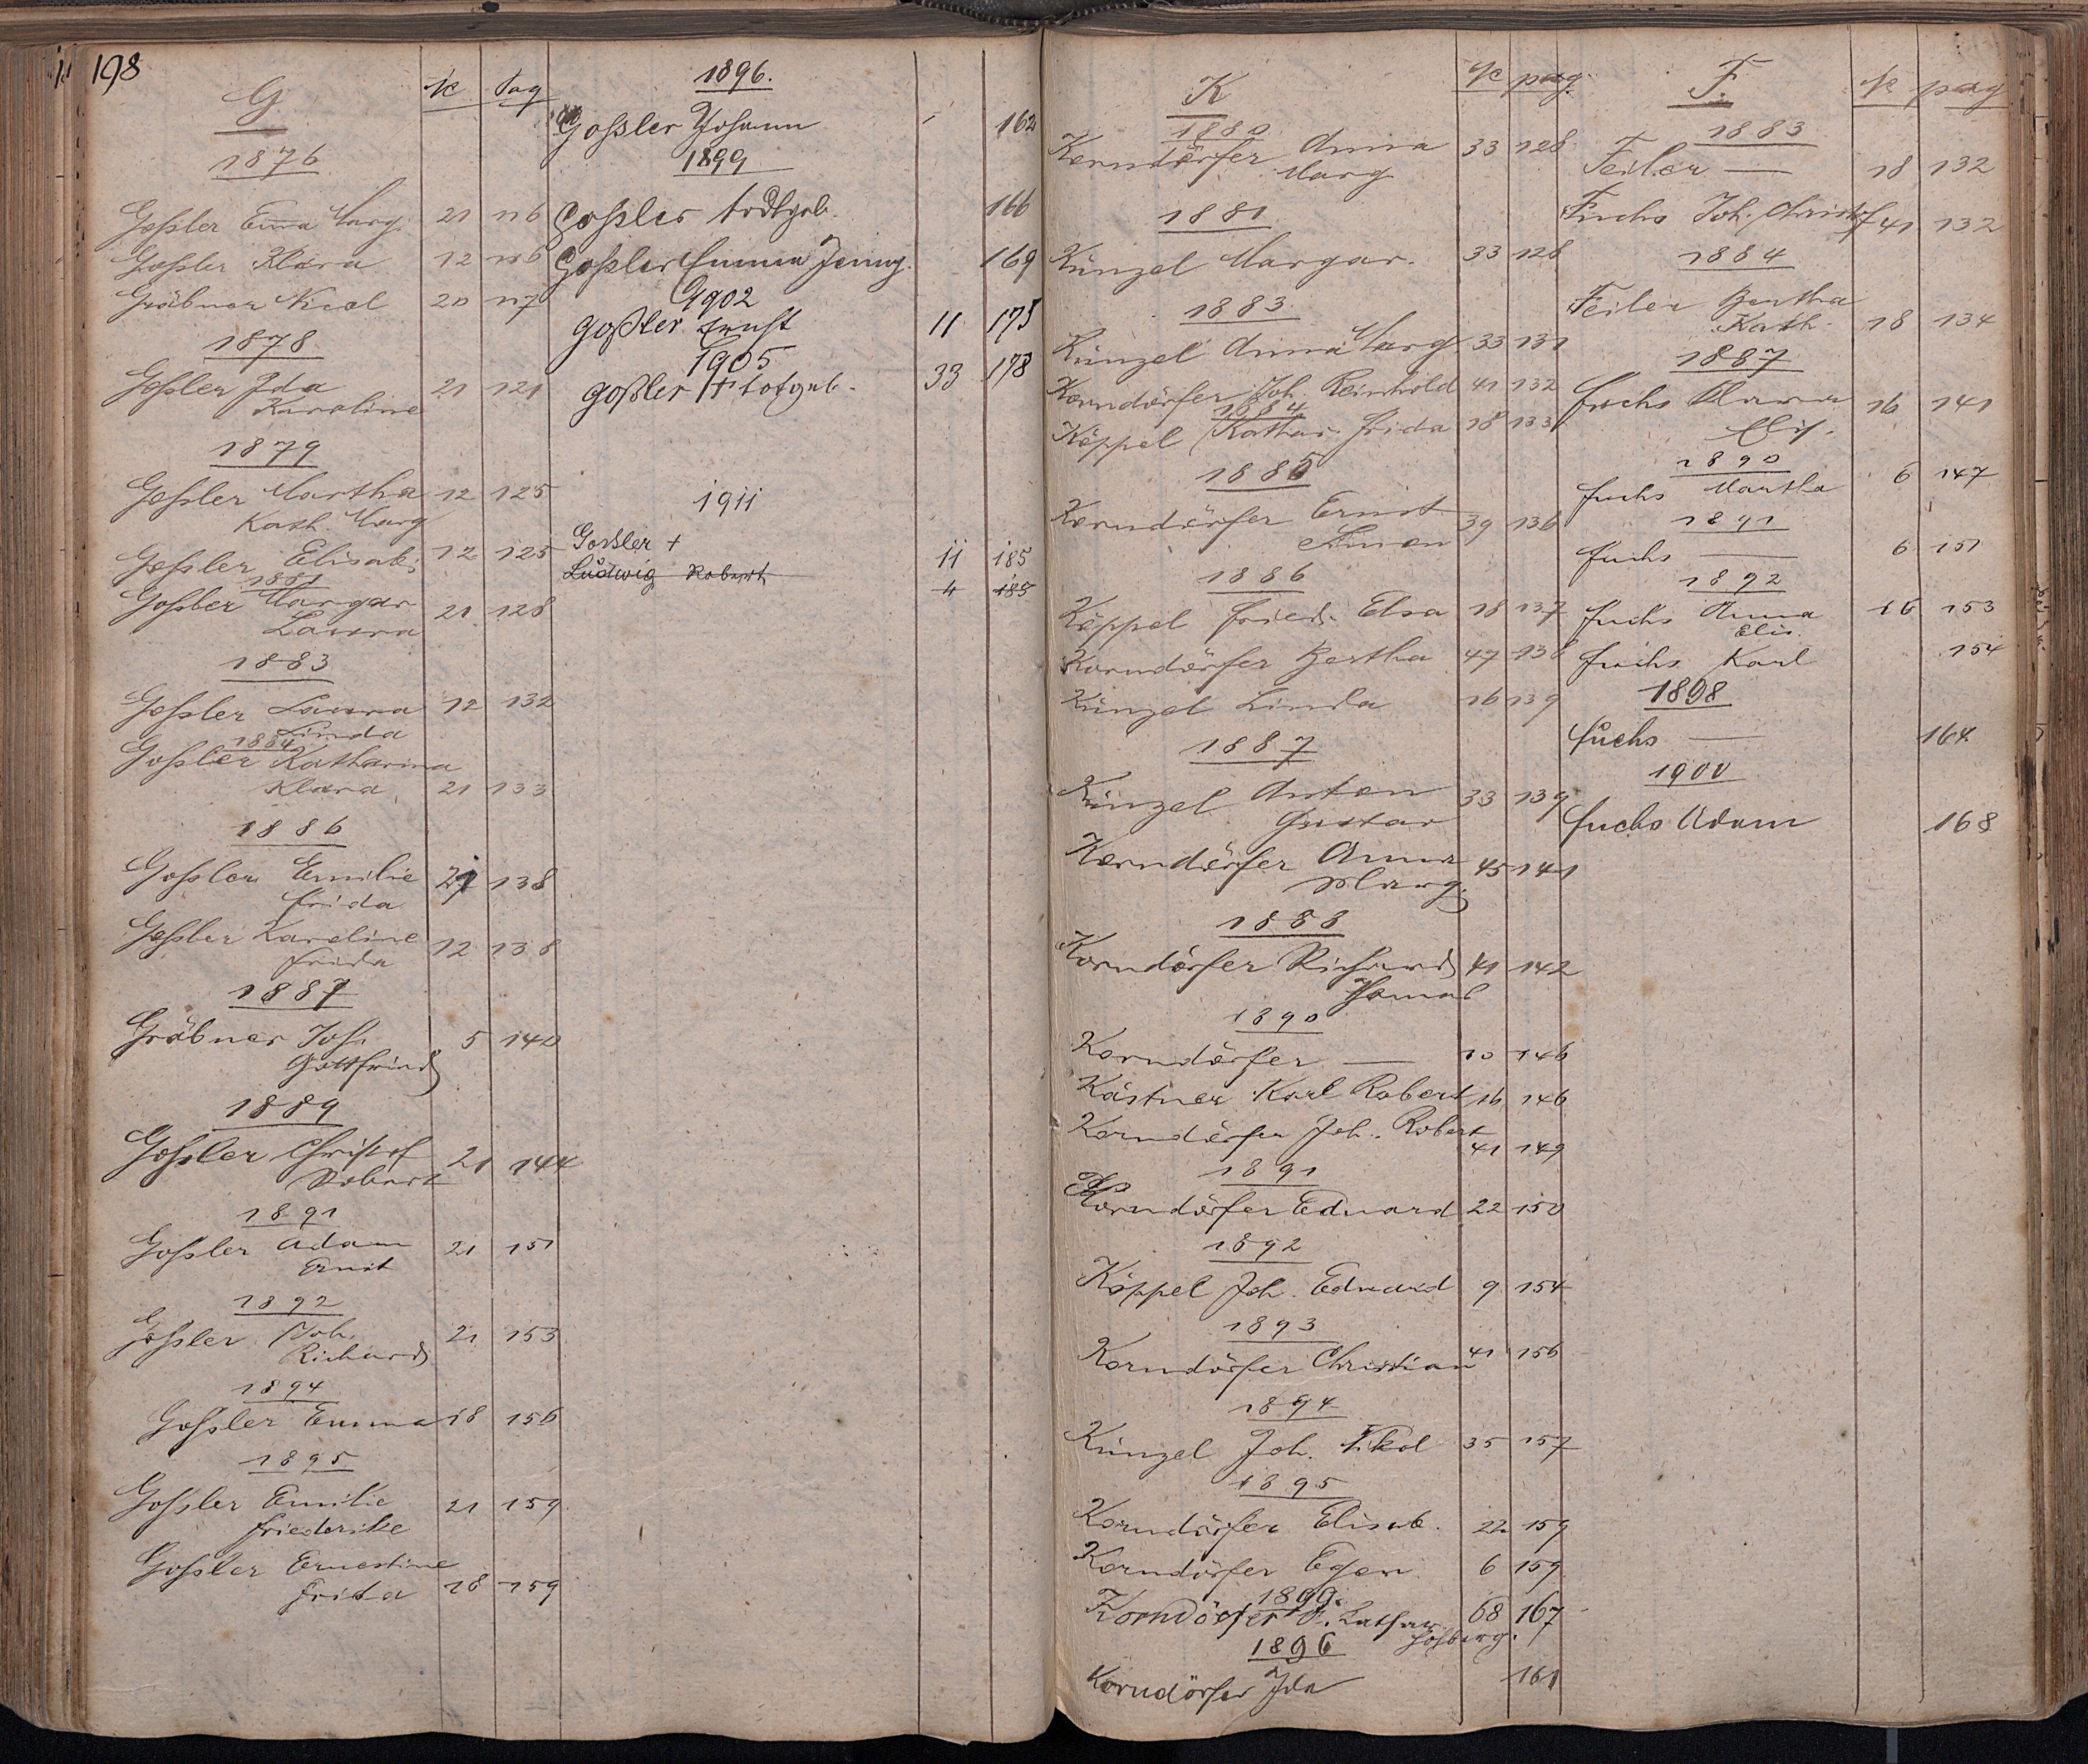 198
G. № pag
1876
Goßler Em̅a Marg. 21 116
Goßler Klara 12 116
Gräbner Nicol 20 117
1878
Goßler Ida 21 121
Karoline
1879
Goßler Martha 12 125
Kath. Marg
Goßler Elisab. 12 125
1881
Goßler Margar 21 128
Laura
1883
Goßler Laura 12 132
Linda
1884
Goßler Katharina
Klara 21 133
1886
Goßler Emilie 21 138
Frida
Goßler Karoline 12 138
Frida
1887
Gräbner Joh. 5 140
Gottfried
1889
Goßler Christof 21 144
Robert
1891
Goßler Adam 21 151
Ernst
1892
Goßler Joh. 21 153
Richard
1894
Goßler Emma 18 156
1895
Goßler Emilie 21 159
Friederike
Goßler Ernestine
Frida 18 159
1896.
Goßler Johann 162
1899
Goßler todtgeb. 166
Goßler Emma Jenny. 169
1902
Goßler Ernst 11 175
1905
Goßler + totgeb. 33 178
1911
Gossler + 11 185
Ludwig Robert 4 185
K № pag.
1880
Korndörfer Anna 33 128
Marg
1881
Künzel Margar. 33 128
1883
Künzel Anna Marg 33 131
Korndörfer Joh. Reinhold 41 132
1884
Köppel Kathar. Frida 18 133
1885
Korndörfer Ernst 39 136
Simon
1886
Köppel Fried. Elsa 18 137
Korndörfer Bertha 47 138
Künzel Linda 16 139
1887
Künzel Anton 33 139
Gustav
Korndörfer Anna 45 141
Marg.
1888
Korndörfer Richard 41 142
Thomas
1890
Korndörfer — 10 146
Kästner Karl Robert 16 146
Korndörfer Joh. Robert
41 149
1891
Korndörfer Eduard 22 150
1892
Köppel Joh. Eduard 9 154
1893
Korndörfer Christian 41 156
1894
Künzel Joh. Nikol 35 157
1895
Korndörfer Elisab. 22 159
Korndörfer Egon 6 159
1899.
Korndörfer 68 167
1896
Korndörfer Ida 161
F. № pag
1883
Feiler — 18 132
Fuchs Joh. Christof 41 132
1884
Feiler Bertha
Kath. 18 134
1887
Fuchs Klara 16 141
Elis.
1890
Fuchs Martha 6 147
1891
Fuchs — 6 151
1892
Fuchs Anna 16 153
Elis.
Fuchs Karl 154
1898
Fuchs — 164
1900
Fuchs Adam 168